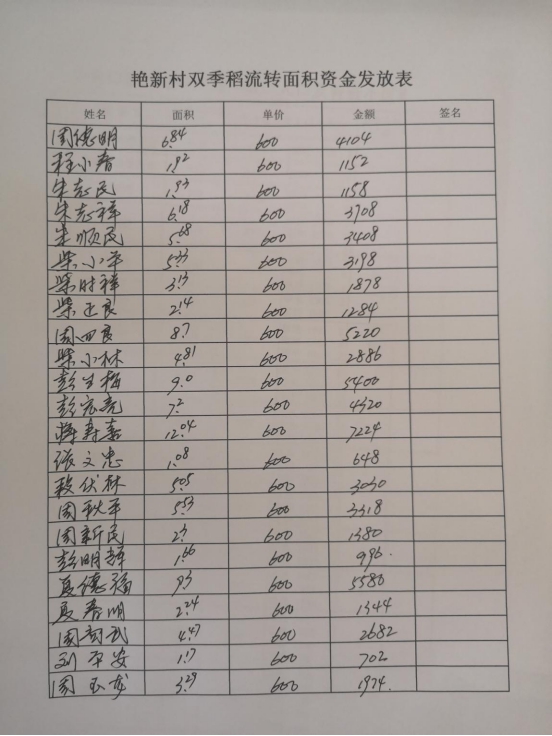 艳新村双季稻流转面积资金发放表
姓名 面积 单价 金额 签名
周德明 6.84 600 4104
程小春 1.92 600 1152
朱志民 1.93 600 1158
朱志祥 6.18 600 3708
朱顺民 5.68 600 3408
柴小平 5.33 600 3198
柴时祥 3.13 600 1878
柴正良 2.14 600 1284
周四良 8.7 600 5220
柴小林 4.81 600 2886
彭生梅 9.0 600 5400
彭宏亮 7.2 600 4320
蒋寿嘉 12.04 600 7224
张文忠 1.08 600 648
段伏林 5.05 600 3030
周秋平 5.53 600 3318
周新民 2.3 600 1380
彭明辉 1.66 600 996.
夏德福 9.3 600 5580
夏春明 2.24 600 1344
周 武 4.47 600 2682
刘平安 1.17 600 702
周玉龙 3.29 600 1974.